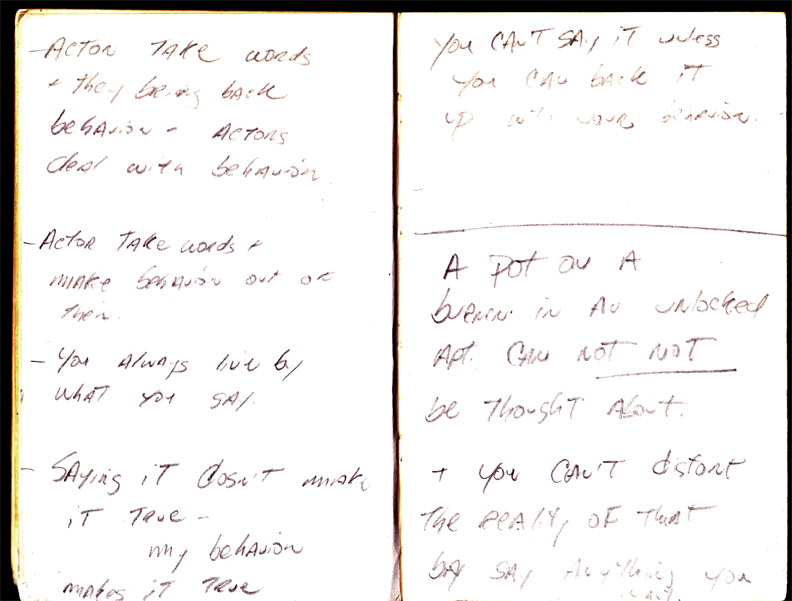 - Actor Take words
+ they bring back
behavior - Actors
deal with behavior
- Actor Take words +
make behavior out of
them.
- You always live by
what you say.
- Saying it dosn't make
it True -
my behavior
makes it True
You can't say it unless
you can back it
up with your behavior.
A pot on a
in an unlocked
Apt. can not not
be thought about.
+ you can't distort
the reality of that
by say anything you
want.